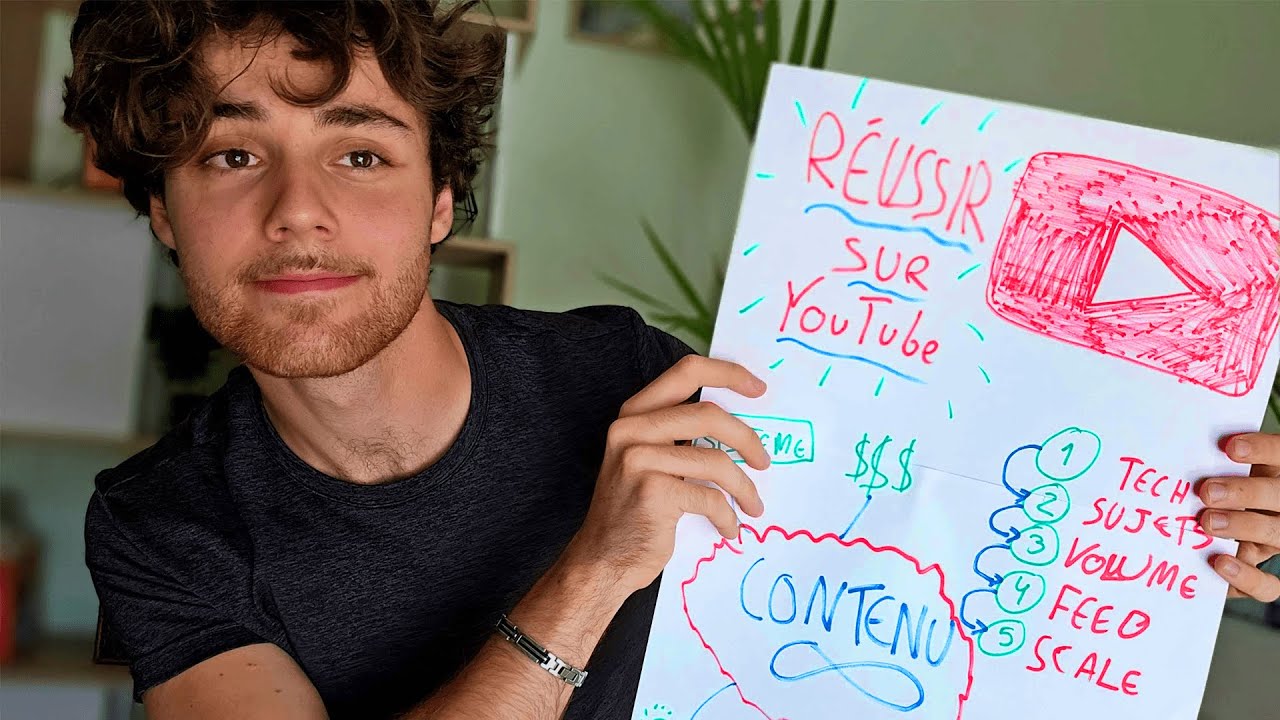 RÉUSSIR
SUR
YouTube
$$$
CONTENU
1 TECH
2 SUJETS
3 VOLUME
4 FEED
5 SCALE